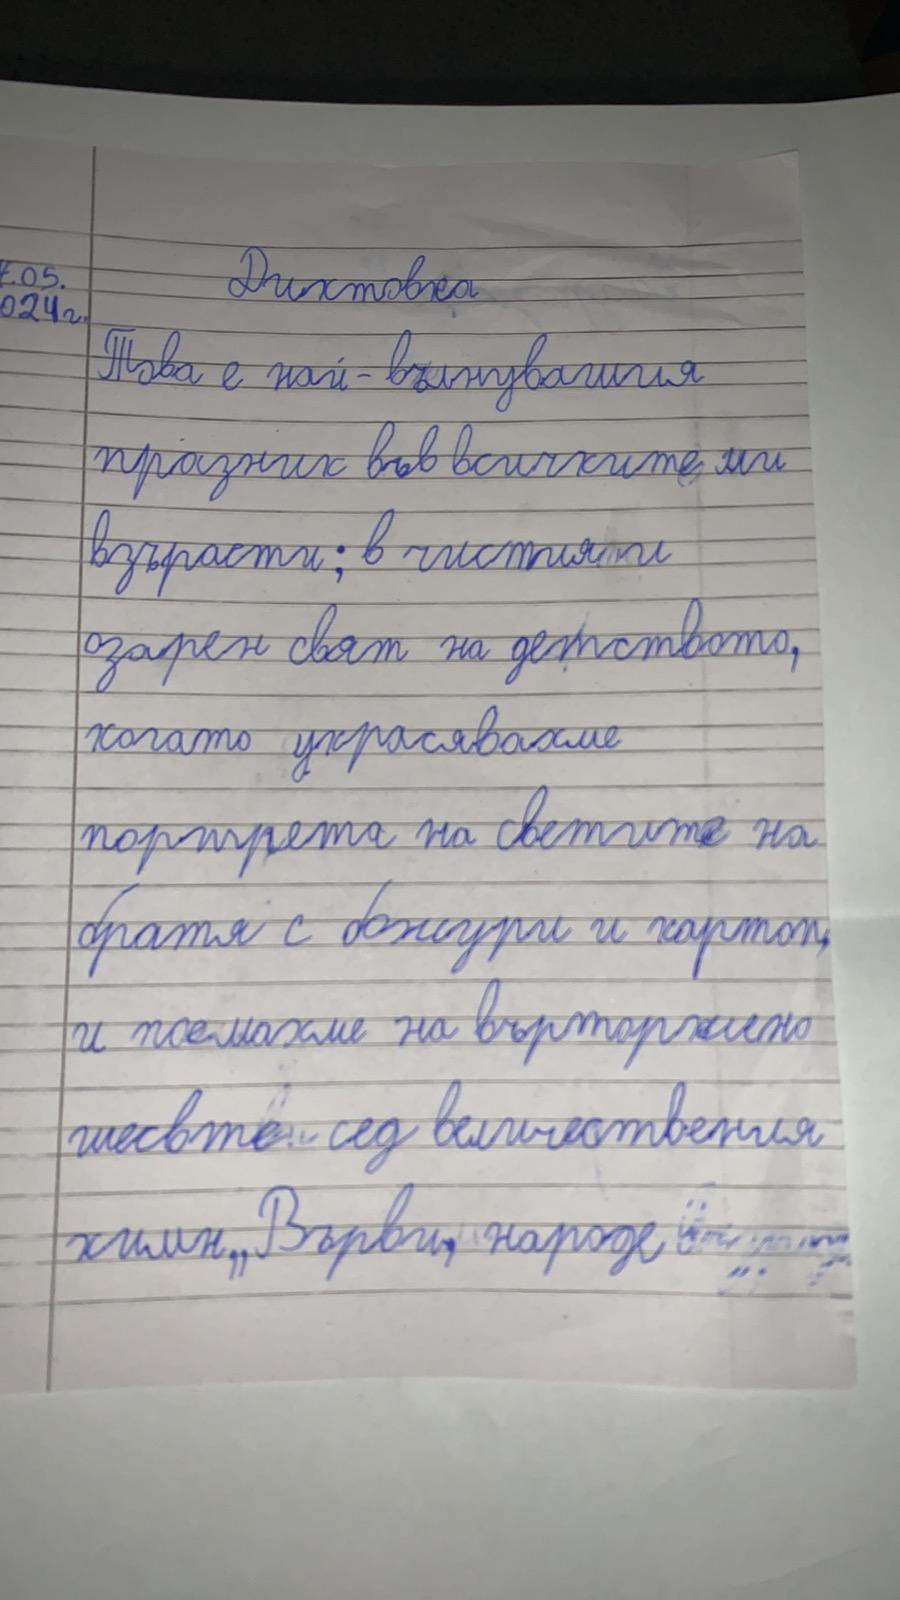 .05.
024г.
Диктовка
Това е най-вълнуващия
празник във всичките ми
възрасти; в чистия и
озарен свят на детството,
когато украсявахме
портрета на светите на
братя с божури и картон,
и поемахме на върторжено
шесвте сед величествения
химн „Върви, народе